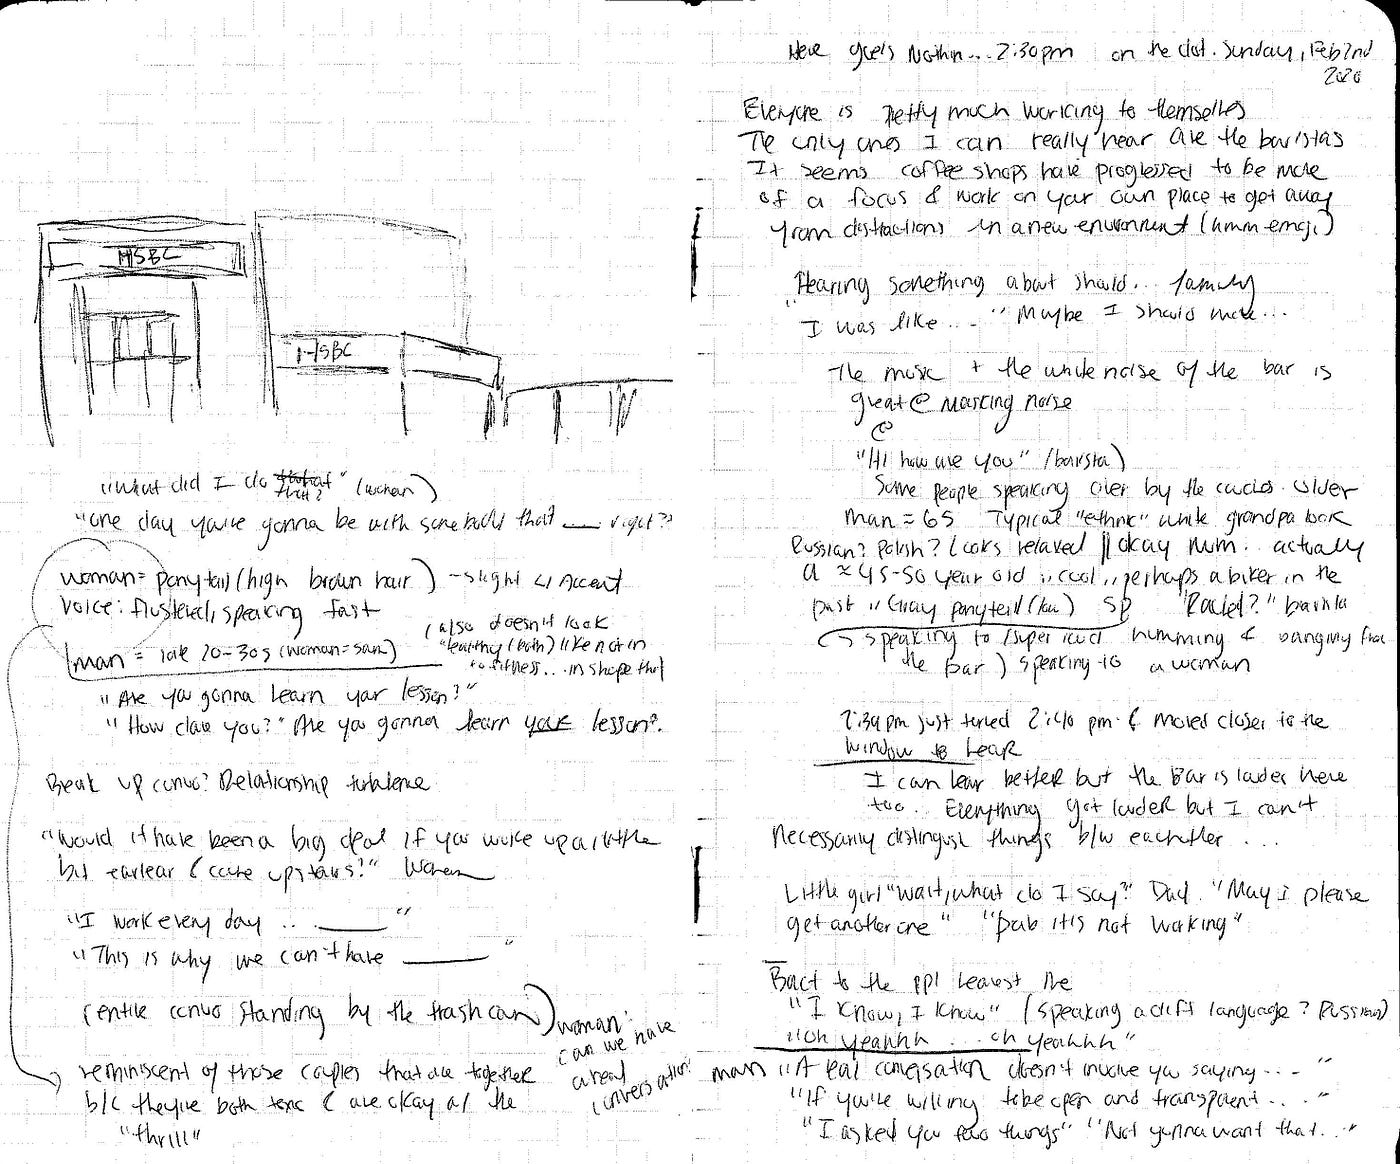 HSBC
HSBC
"What did I do that?" (woman)
"one day you're gonna be with somebody that ___ right?"
woman = ponytail (high brown hair) - slight w/ Accent
Voice: flustered, speaking fast
man = late 20-30s (woman = same)
(also doesn't look
"healthy (both) like not in
to fitness... in shape tho)
"Are you gonna learn your lesson?"
"How clow you?" Are you gonna learn your lesson?.
Break up convo? Relationship turbulence
"Would it have been a big deal if you woke up a little
bit earlear & came upstairs?" Women
"I work every day ... ___"
"This is why we can't have ___"
(entire convo standing by the trash can)
woman:
can we have
a real
conversation?
reminiscent of those couples that are together
b/c they're both toxic & are okay w/ the
"thrill"
Here goes Nothin... 2:30pm on the dot. Sunday, Feb 2nd
2020
Everyone is pretty much working to themselves
The only ones I can really hear are the baristas
It seems coffee shops have progressed to be more
of a focus & work on your own place to get away
from distractions in a new environment (hmm emoji)
Hearing something about should... family
"I was like... "Maybe I should move...
The music + the white noise of the bar is
great @ masking noise
@
"Hi how are you" (barista)
Some people speaking over by the Older
man = 65 Typical "ethnic" white grandpa look
Russian? Polish? Looks relaxed || okay num.. actually
a ≈ 45-50 year old "cool" perhaps a biker in the
past " Gray ponytail (low) sp "Routed?" barista
speaking to (super loud humming & banging from
the bar) speaking to a woman
2:39pm just turned 2:40 pm & moved closer to the
window to hear
I can hear better but the Bar is louder here
too.. Everything got louder but I can't
Necessarily distinguish things b/w eachother ...
Little girl "wait, what do I say?" Dad. "May i please
get another one" "Dab it is not working"
Back to the ppl nearest me
"I know, I know" (speaking a diff language? Russian)
"Oh yeahhh ... oh yeahhh"
man "A real conversation doesn't involve you saying... "
"If you're willing to be open and transparent.... "
"I asked you two things" "Not gunna want that..."